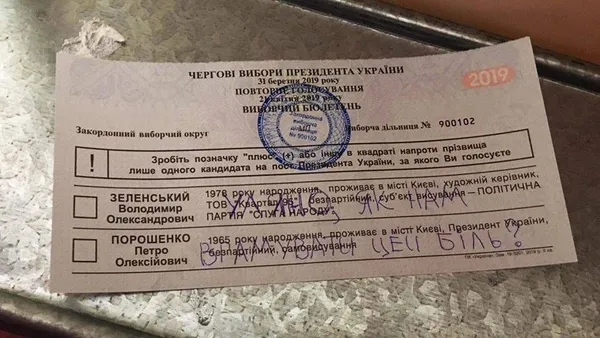 ЧЕРГОВІ ВИБОРИ ПРЕЗИДЕНТА УКРАЇНИ
31 березня 2019 року
ПОВТОРНЕ ГОЛОСУВАННЯ
21 квітня 2019 року
ВИБОРЧИЙ БЮЛЕТЕНЬ
2019
Закордонна виборча дільниця № 900102
МП
Закордонний виборчий округ
Виборча дільниця № 900102
!
Зробіть позначку "плюс" (+) або іншу в квадраті напроти прізвища
лише одного кандидата на пост Президента України, за якого Ви голосуєте
ЗЕЛЕНСЬКИЙ
Володимир
Олександрович
1978 року народження, проживає в місті Києві, художній керівник,
ТОВ "Квартал 95", безпартійний, суб'єкт висування - ПОЛІТИЧНА
ПАРТІЯ "СЛУГА НАРОДУ"
ПОРОШЕНКО
Петро
Олексійович
1965 року народження, проживає в місті Києві, Президент України,
безпартійний, самовисування
ЯК НАМ
ВГАМУВАТИ ЦЕЙ БІЛЬ?